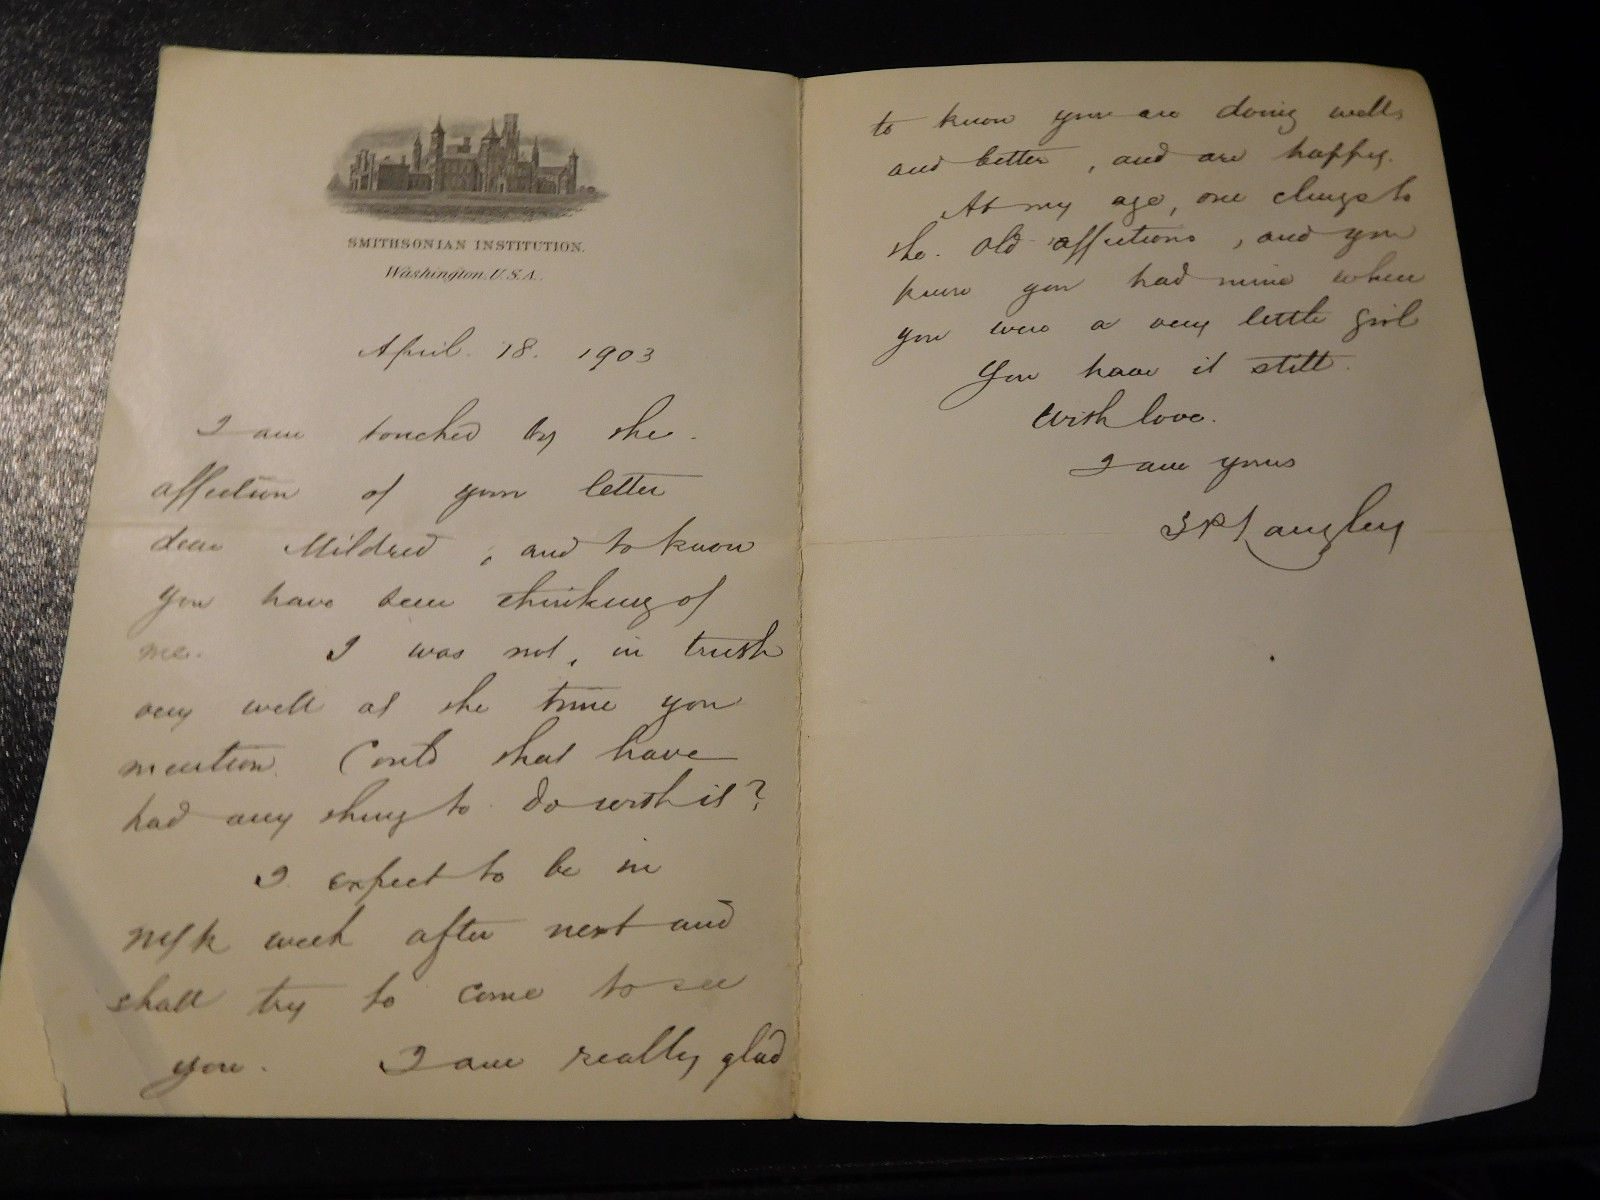 SMITHSONIAN INSTITUTION.
Washington, U.S.A.
April. 18. 1903
I am touched by the
affection of your letter
dear Mildred, and to know
you have been thinking of
me. I was not, in truth
very well at the time you
mention. Could that have
had any thing to do with it?
I expect to be in
NYk week after next and
shall try to come to see
you. I am really glad
to know you are doing well,
and better, and are happy.
At my age, one clings to
the old affections, and you
know you had mine when
you were a very little girl
You have it still.
With love.
I am yours
S P Langley